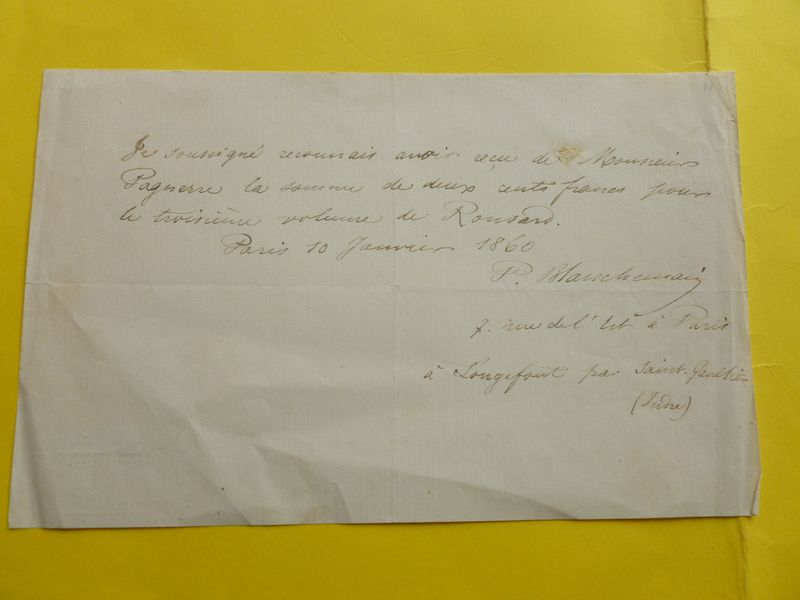 Je soussigné reconnais avoir reçu de Monsieur
Pagnerre la somme de deux cents francs pour
le troisième volume de Ronsard.
Paris 10 Janvier 1860
P. Blanchemain
7. rue de l' à Paris
à Longefont par Saint-Gaultier
(Indre)